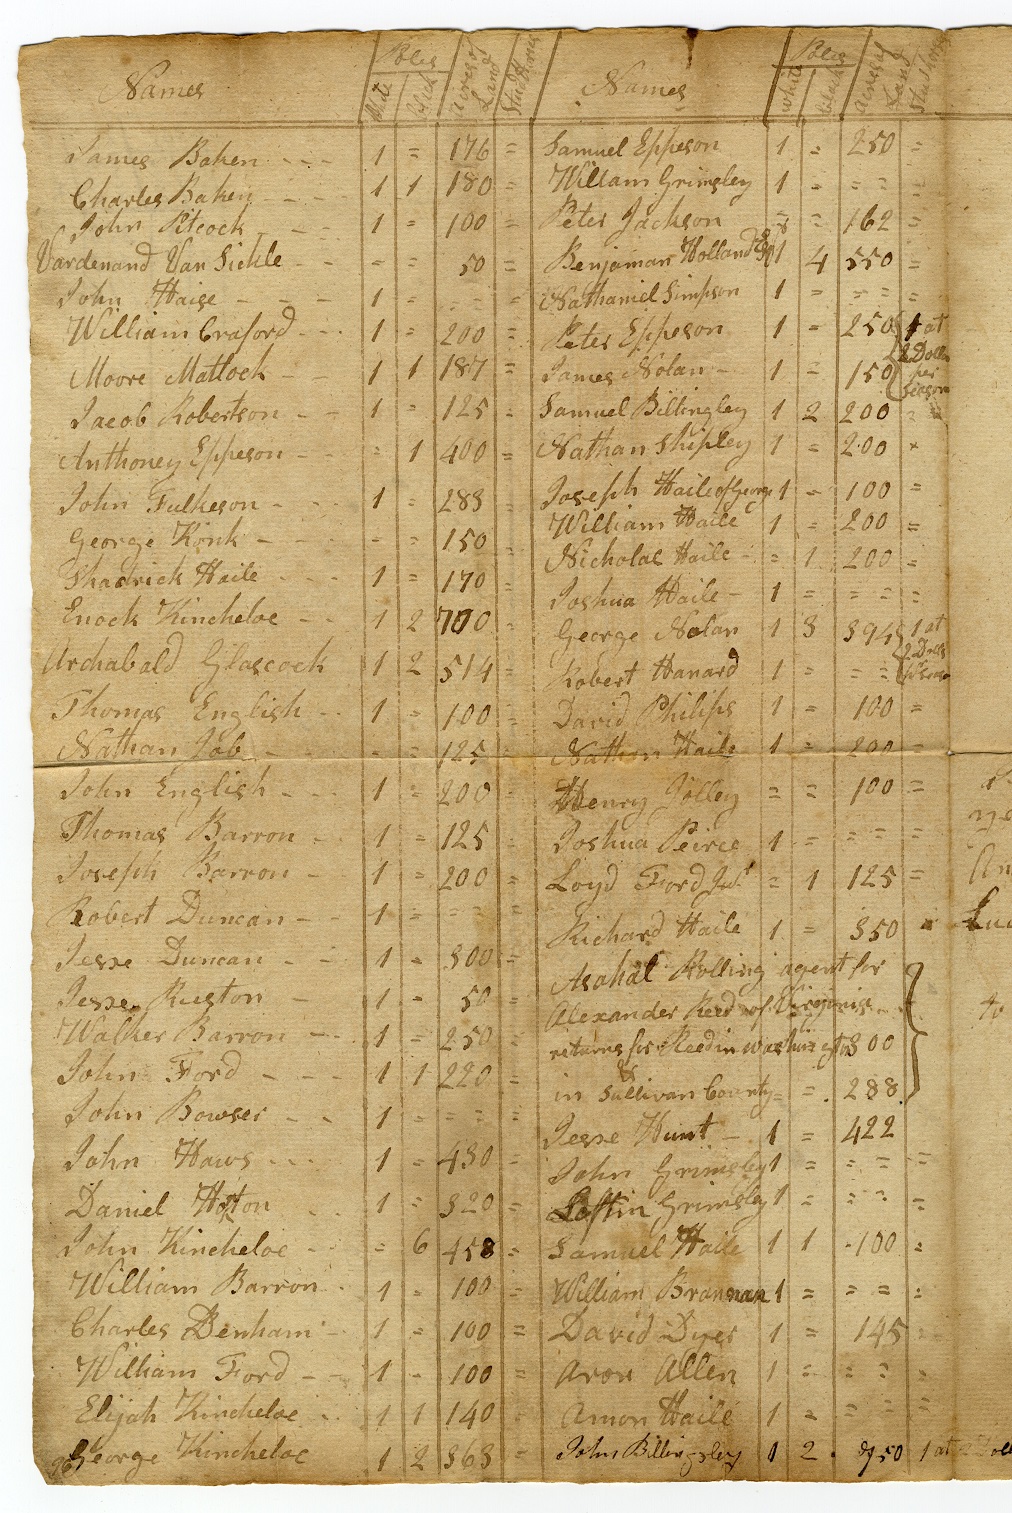 Names Poles White Black Acres of Land Stud Horses
James Baken - - - 1 = 176 =
Charles Baken - - - 1 1 180 =
John Pitcock - - - 1 = 100 =
Vardenand Van Sickle - - = = 50 =
John Haise - - - 1 = = = =
William Craford - - - 1 = 200 =
Moore Matlock - - 1 1 187 =
Jacob Robertson - - 1 = 125 =
Anthoney Eppeson - - = 1 400 =
John Fulkeson - - - 1 = 283 =
George Konk - - - = = 150 =
Shadrick Haile - - - 1 = 170 =
Enock Kincheloe - - 1 2 700 =
Archabald Glascock 1 2 514 =
Thomas English - - 1 = 100 =
Nathan Job - - - = = 125 =
John English - - - 1 = 200 =
Thomas Barron - 1 = 125 =
Joseph Barron - 1 = 200 =
Robert Duncan - - 1 = = = =
Jesse Duncan - - 1 = 300 =
Jesse Ruston - 1 = 50 =
Walker Barron - - 1 = 250 =
John Ford - - - 1 1 220 =
John Bowser - - 1 = = = =
John Haws - - - 1 = 430 =
Daniel Hoton - - 1 = 320 =
John Kincheloe - - = 6 458 =
William Barron - 1 = 100 =
Charles Denham - 1 = 100 =
William Ford - - 1 = 100 =
Elijah Kincheloe - 1 1 140 =
George Kincheloe 1 2 363 =
Names Poles White Black Acres of Land Stud Horses
Samuel Eppeson 1 = 250 =
William Grimsley 1 = = = =
Peter Jackson = = 162 =
Benjaman Holland 1 4 550 =
Nathaniel Simpson 1 = = = =
Peter Eppeson 1 = 250 1 at
2 Dolls
James Nolan - 1 = 150 per
season
Samuel Billingley 1 2 200 =
Nathan Shipley 1 = 200 =
Joseph Haile of George 1 = 100 =
William Haile 1 = 200 =
Nicholas Haile - = 1 200 =
Joshua Haile - 1 = = = =
George Nolan 1 3 394 1 at
2 Dolls
Robert Hanard 1 = = =
David Philips 1 = 100 =
Nathan Haile 1 = 200 =
Henry Jolley = = 100 =
Joshua Peirce 1 = = = =
Loyd Ford = 1 125 =
Richard Haile 1 = 350
Asahal Rolling agent for
Alexander Reed of Virginia
returns for Reed in Washington 300
in Sullivan County = = 288
Jesse Hunt - 1 = 422
John Grimsley 1 = = = =
Loftin Grimsley 1 = = = =
Samuel Haile 1 1 100 =
William Brannan 1 = = = =
David Dyer 1 = 145
Aron Allen 1 = = = =
Amon Haile 1 = = = =
John Billingsley 1 2 950 1 at 2 Doll